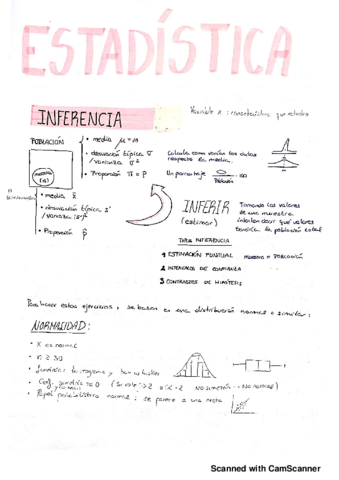 ESTADÍSTICA
INFERENCIA
Variable X : característica que
POBLACIÓN
• media μ = m
• desviación típica σ
/ varianza σ²
• Proporción π = p
Calcula como varían los datos
respecto la media.
Un porcentaje
Población
· 100
muestra
(n)
• media x̄
• desviación típica s'
/ varianza s'²
• Proporción p̂
INFERIR
(estimar)
Tomando los valores
de una muestra
intentan decir que valores
tendría la población total
TIPOS INFERENCIA
1 ESTIMACIÓN PUNTUAL muestra = POBLACIÓN
2 INTERVALOS DE CONFIANZA
3 CONTRASTES DE HIPÓTESIS
Para hacer estos ejercicios, se basan en una distribución normal o similar:
NORMALIDAD:
• X es normal
• n ≥ 30
• histograma y
• Coef. simetría ≈ 0 (Si está >2 o <-2 NO simetría → No normal)
• Papel probabilístico normal: se parece a una recta
Scanned with CamScanner